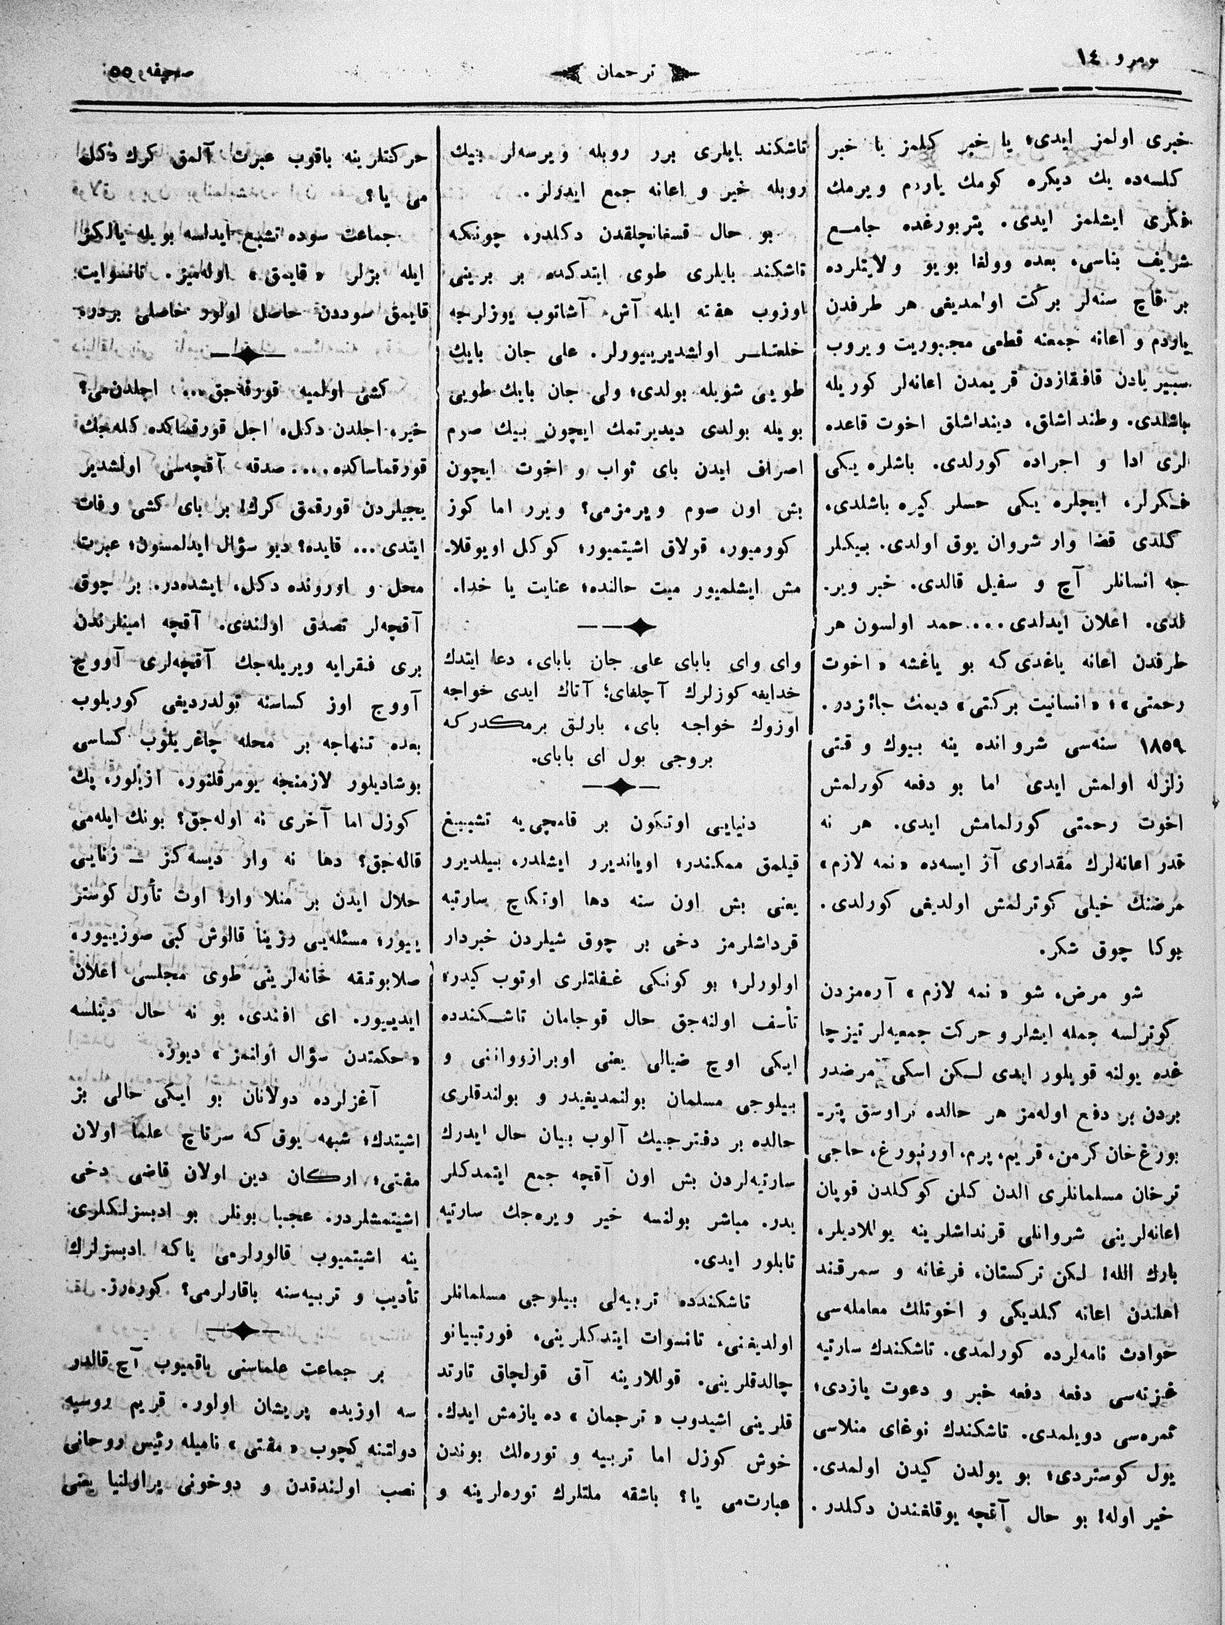 نومرو ١٤
ترجمان
صحیفه ٥٥
خبری اولمز ایدی؛ یا خبر کیلمز یا خبر
کلسه‌ده یك دیکره کومك یاردم ویرمك
فکری ایشلمز ایدی. پتربورغده جامع
شریف بناسی، بعده وولغا بویو ولایتلرده
بر قاچ سنه‌لر برکت اولمدیغی هر طرفدن
یاردم و اعانه جمعنه قطعی مجبوریت ویروب
سیبریادن قافقازدن قریمدن اعانه‌لر کوریله
باشلدی. وطنداشلق، دینداشلق اخوت قاعده
لری ادا و اجراده کورلدی. باشلره یکی
فکرلر، ایچلره یکی حسلر کیره باشلدی.
کلدی قضا وار شروان یوق اولدی. بیکلر
جه انسانلر آچ و سفیل قالدی. خبر ویر.
لدی. اعلان ایدلدی... حمد اولسون هر
طرفدن اعانه یاغدی که بو یاغشه «اخوت
رحمتی»، «انسانیت برکتی» دیمك جائزدر.
١٨٥٩ سنه‌سی شروانده ینه بیوك وقتی
زلزله اولمش ایدی اما بو دفعه کورلمش
اخوت رحمتی کورلمامش ایدی. هر نه
قدر اعانه‌لرك مقداری آز ایسه‌ده «نمه لازم»
مرضنك خیلی کوترلمش اولدیغی کورلدی.
بوکا چوق شکر.
شو مرض، شو «نمه لازم» آره‌مزدن
کوترلسه جمله ایشلر و حرکت جمعیه‌لر تیزچا
غده یولنه قویلور ایدی لکن اسکی مرضدر
بردن بر دفع اوله‌مز هر حالده نراوسق پتر-
بورغ خان کرمن، قریم، پرم، اورنبورغ، حاجی
ترخان مسلمانلری الدن کلن کوکلدن قوپان
اعانه‌لرینی شروانلی قرنداشلرینه یوللادیلر.
بارك الله! لکن ترکستان، فرغانه و سمرقند
اهلندن اعانه کلدیکی و اخوتلك معامله‌سی
حوادث نامه‌لرده کورلمدی. تاشکندك سارتیه
غزته‌سی دفعه دفعه خبر و دعوت یازدی؛
ثمره‌سی دویلمدی. تاشکندك نوغای منلاسی
یول کوستردی؛ بو یولدن کیدن اولمدی.
خیر اوله! بو حال آقچه یوقلغندن دکلدر.
تاشکند بایلری برر روبله ویرسه‌لر بیك
روبله خیر و اعانه جمع ایدرلر.
بو حال قسغانچلقدن دکلدر، چونکه
تاشکند بایلری طوی ایتدکده بر برینی
اوزوب هفته ایله آش آشاتوب یوزلرجه
خلعتلر اولشدیرییورلر. علی جان بایك
طویی شویله بولدی؛ ولی جان بایك طویی
بویله بولدی دیدیرتمك ایچون بیك صوم
اصراف ایدن بای ثواب و اخوت ایچون
بش اون صوم ویرمزمی؟ ویرر اما کوز
کورمیور، قولاق اشیتمیور؛ کوکل اویوقلا-
مش ایشلمیور میت حالنده؛ عنایت یا خدا.
وای وای بابای علی جان بابای، دعا ایتدك
خدایغه کوزلرك آچلغای؛ آتاك ایدی خواجه
اوزوك خواجه بای، بارلق برمکدرکه
بروجی بول ای بابای.
دنیایی اوتکون بر قامچی‌یه تشبیغ
قیلمق ممکندر؛ اویاندیرر ایشلدر، بیلدیرر
یعنی بش اون سنه دها اوتکاچ سارتیه
قرداشلرمز دخی بر چوق شیلردن خبردار
اولورلر؛ بو کونکی غفلتلری اوتوب کیدر؛
تأسف اولنه‌جق حال قوجامان تاشکندده
ایکی اوچ ضیالی یعنی اوبرازوواننی و
بیلوجی مسلمان بولنمدیغیدر و بولندقلری
حالده بر دفترجیك آلوب بیان حال ایدرك
سارتیه‌لردن بش اون آقچه جمع ایتمدکلر
یدر. مباشر بولنسه خیر ویره‌جك سارتیه
تابلور ایدی.
تاشکندده تربیه‌لی بیلوجی مسلمانلر
اولدیغنی، تانسوات ایتدکلرینی، فورتیپانو
چالدقلرینی. قوللارینه آق قولچاق تارتد
قلرینی اشیدوب «ترجمان» ده یازمش ایدك.
خوش کوزل اما تربیه و توره‌لك بوندن
عبارت‌می یا؟ باشقه ملتلرك توره‌لرینه و
حرکتلرینه باقوب عبرت آلمق کرك دکل
می یا؟
جماعت سوده تشبیع ایدلسه بویله یالکز
ایله بزلر «قایمق» اوله‌میز. تانسوایت
قایمق سوددن حاصل اولور خاصلی بردر.
کشی اولمیه قورقه‌جق... اجلدن‌می؟
خیر، اجلدن دکل، اجل قورقساكده کله‌جك
قورقماساكده.... صدقه آقچه‌سی اولشدیر
یجیلردن قورقمق کرك! بر بای کشی وفات
ایتدی... قایده؟ دیو سؤال ایدلمسون؛ عبرت
محل و اورونده دکل، ایشده‌در. بر چوق
آقچه‌لر تصدق اولندی. آقچه امینلرندن
بری فقرایه ویریله‌جك آقچه‌لری آووچ
آووچ اوز کساسنه تولدردیغی کوریلوب
بعده تنهاجه بر محله چاغریلوب کساسی
بوشادیلور لازمنجه یومرقلنور، ازیلور، پك
کوزل اما آخری نه اوله‌جق؟ بونك ایله‌می
قاله‌جق؟ دها نه وار دیسه‌کز — زنایی
حلال ایدن بر منلا وار! اوت تأول کوستر
ییور؛ مسئله‌یی رزینا قالوش کبی صوزییور،
صلابوتقه خانه‌لرینی طوی مجلسی اعلان
ایدییور. ای افندی، بو نه حال دینلسه
«حکمتدن سؤال اولنمز» دیور.
آغزلرده دولانان بو ایکی حالی بز
اشیتدك؛ شبهه یوق که سرتاج علما اولان
مفتی؛ ارکان دین اولان قاضی دخی
اشیتمشلردر. عجبا بونلر بو ادبسزلکلری
ینه اشیتمیوب قالورلرمی یاکه ادبسزلرك
تأدیب و تربیه‌سنه باقارلرمی؟ کوره‌رز.
بر جماعت علماسنی باقمیوب آچ قالدر
سه اوزیده پریشان اولور. قریم روسیه
دولتنه کچوب «مفتی» نامیله رئیس روحانی
نصب اولندقدن و دوخونی پراولنیا یعنی